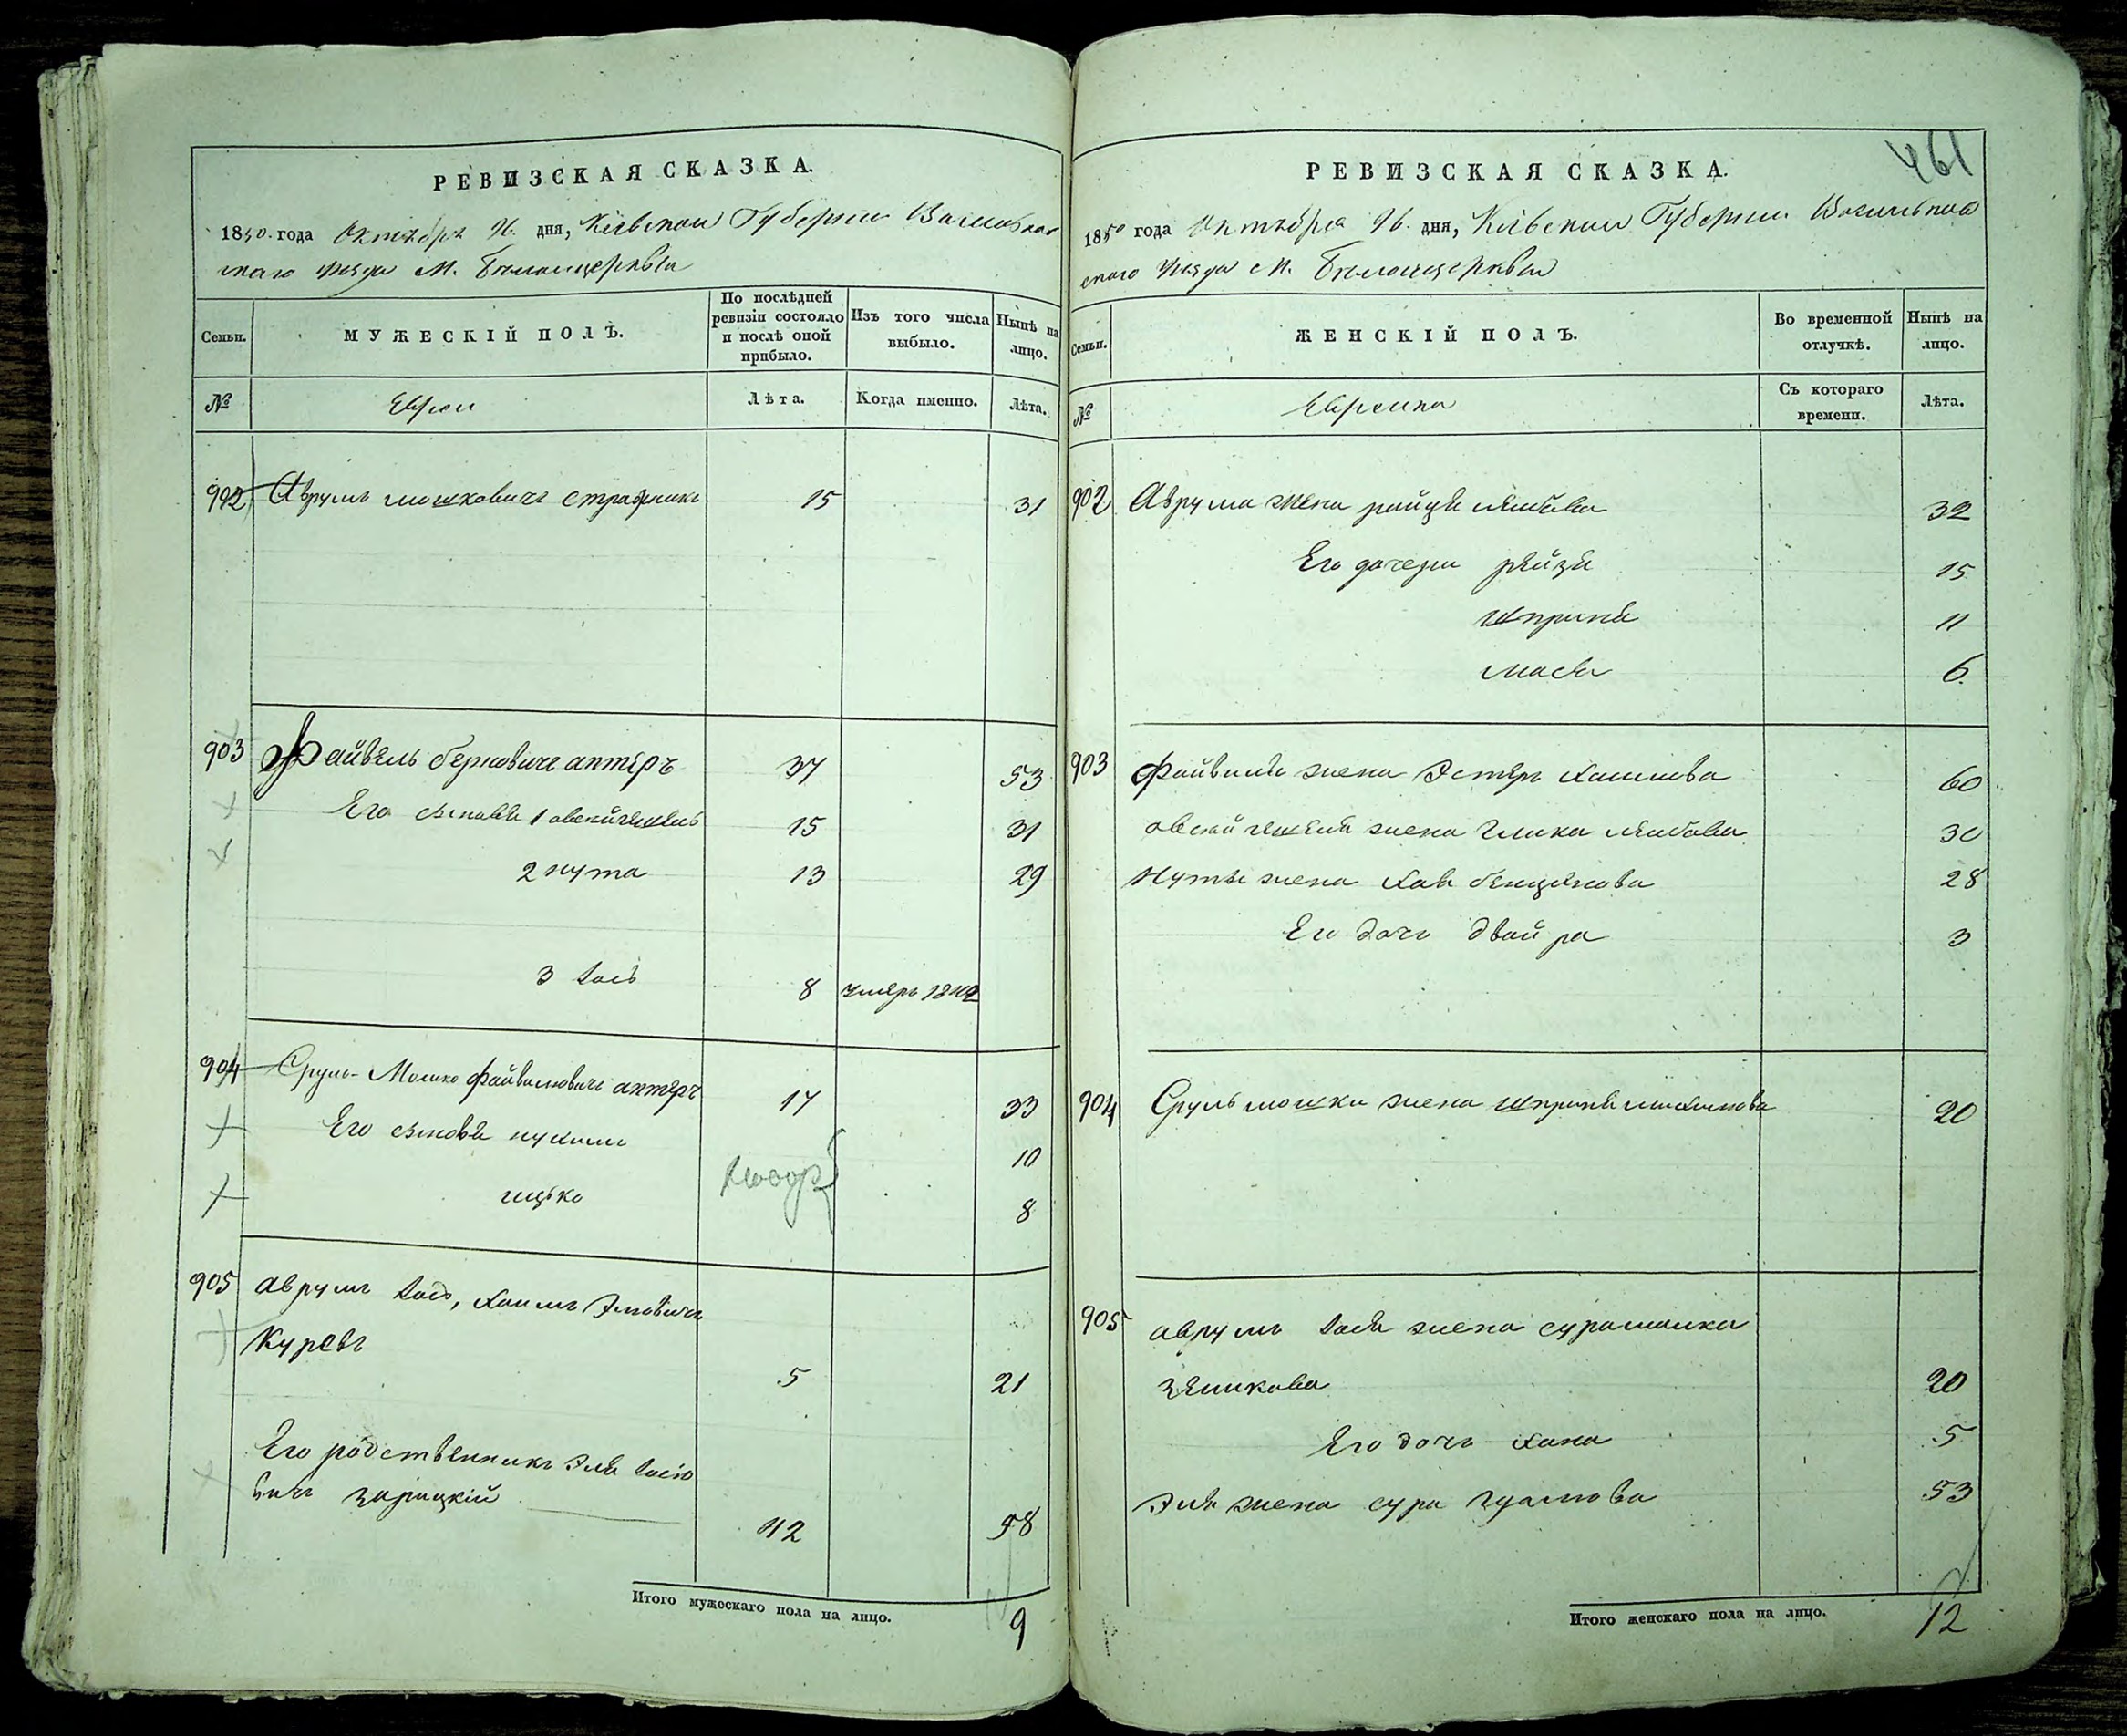 РЕВИЗСКАЯ СКАЗКА.
1850. года Октября 26. дня, Кіевской Губерніи Васильков
скаго уѣзда м. Бѣлоцерквы
Семьи. МУЖЕСКІЙ ПОЛЪ. По послѣдней ревизіи состояло и послѣ оной прибыло. Изъ того числа выбыло. Нынѣ на лицо.
№ Евреи Лѣта. Когда именно. Лѣта.
902 Аврумъ Мошковичъ 15 31
903 Файвель Берковичъ аптеръ 37 53
Его сыновья 1 15 31
2 нута 13 29
3 Іось 8 умеръ 1844
904 Сруль-Мошко Файвелевичъ аптеръ 17 33
Его сыновья нухимъ 10
ицько 8
905 аврумъ Іось, Хаимъ Элевичъ
Куревъ
5 21
Его родственникъ Эля Іосіо
вичъ зарицкій
42 58
Итого мужескаго пола на лицо. 9
461
РЕВИЗСКАЯ СКАЗКА.
1850 года Октября 26. дня, Кіевской Губерніи Васильков
скаго уѣзда м. Бѣлоцерквы
Семьи. ЖЕНСКІЙ ПОЛЪ. Во временной отлучкѣ. Нынѣ на лицо.
№ Еврейки Съ котораго времени. Лѣта.
902 Аврума жена лейбова 32
Его дочери рейзя 15
шприня 11
мася 6
903 Файвеля жена Эстеръ Хаимова 60
жена лейбова 30
Нуты жена Хая бенціонова 28
Его дочь двойра 3
904 Сруль мошки жена шприня 20
905 аврумъ Іося жена сурамалка
зеликова 20
Его дочь Хана 5
Эля жена сура 53
Итого женскаго пола на лицо. 12